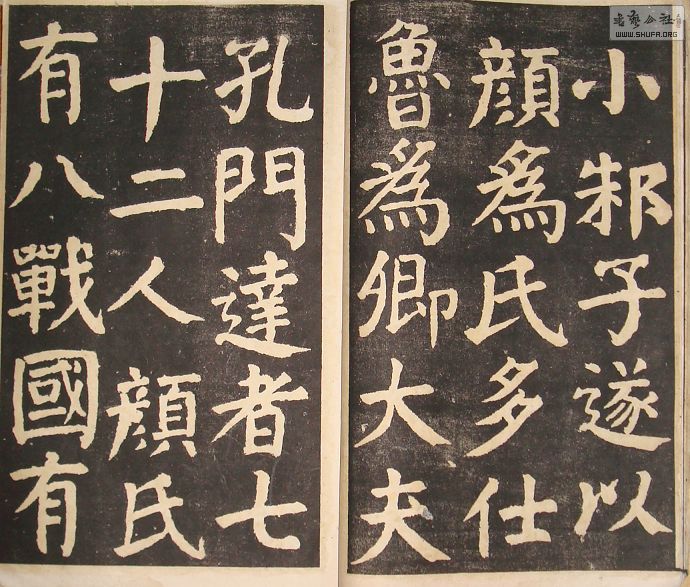 小邾子遂以
顔爲氏多仕
魯爲卿大夫
孔門達者七
十二人顔氏
有八戰國有
WWW.SHUFA.ORG